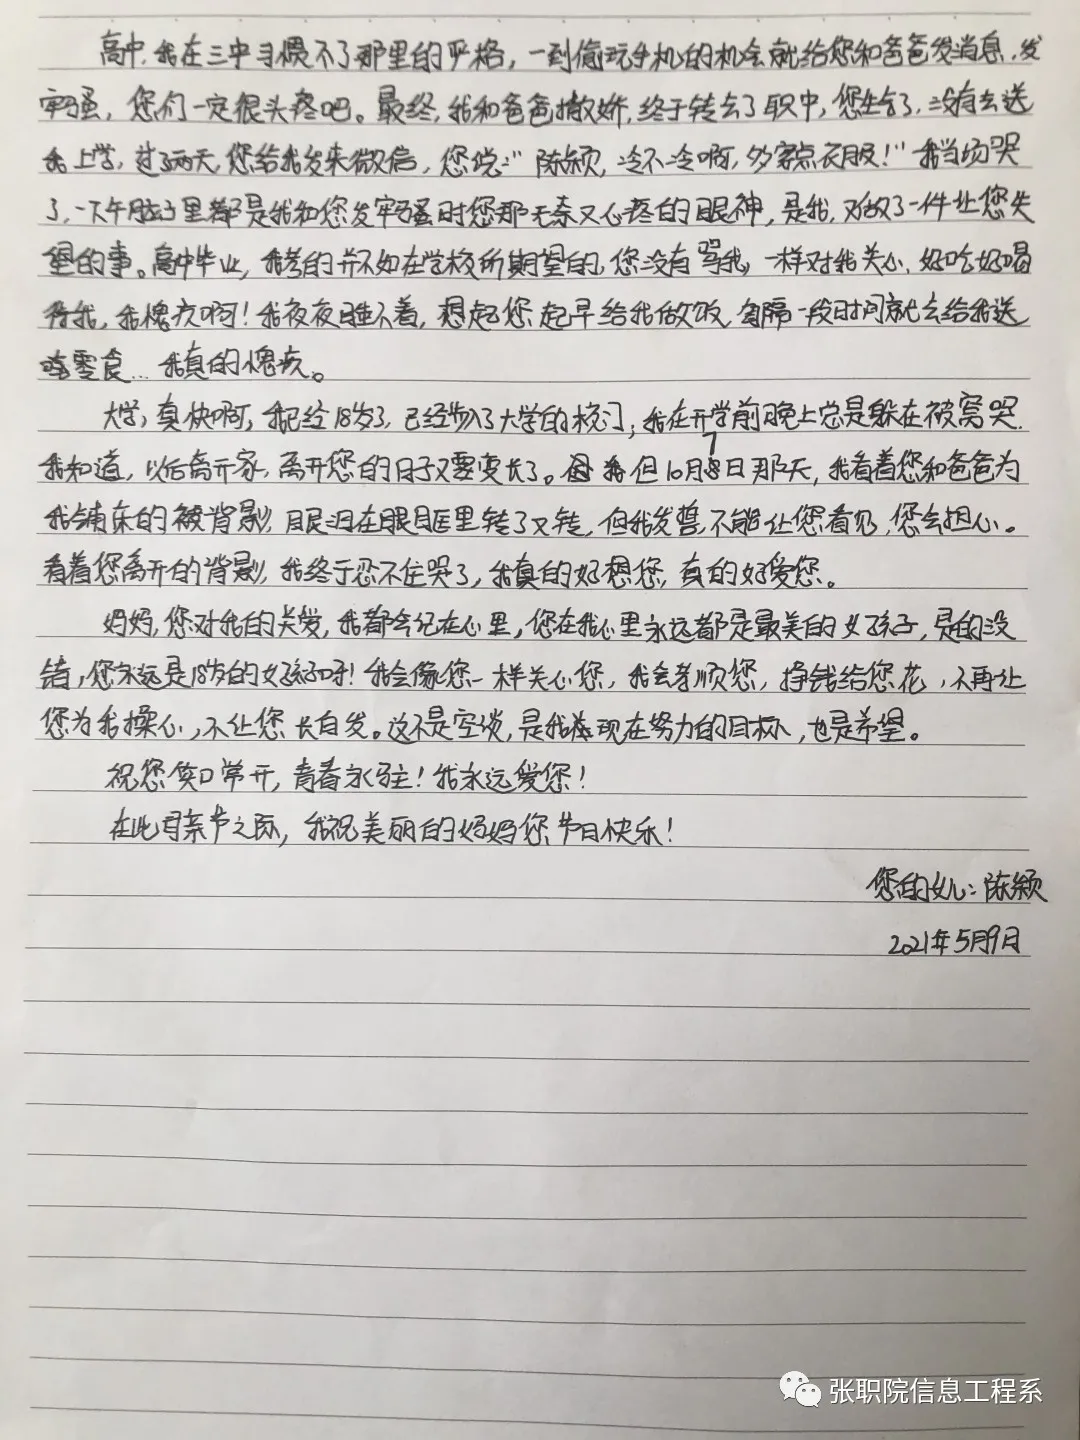 高中，我在三中习惯不了那里的严格，一到偷玩手机的机会就给您和爸爸发消息，发
牢骚，您们一定很头疼吧。最终，我和爸爸撒娇，终于转去了职中，您生气了，没有去送
我上学，过了两天，您给我发来微信，您说："陈颖，冷不冷啊，多穿点衣服！"我当场哭
了，一下午脑子里都是我和您发牢骚时您那无奈又心疼的眼神，是我，又做了一件让您失
望的事。高中毕业，我考的并不如在学校所期望的，您没有骂我，一样对我关心，好吃好喝
待我，我愧疚啊！我夜夜睡不着，想起您起早给我做饭，每隔一段时间就去给我送
零食…我真的愧疚。
大学，真快啊，我已经18岁了，已经步入了大学的校门，我在开学前晚上总是躲在被窝哭，
我知道，以后离开家，离开您的日子又要变长了。但10月7日那天，我看着您和爸爸为
我铺床的被背影，眼泪在眼眶里转了又转，但我发誓不能让您看见，您会担心。
看着您离开的背影，我终于忍不住哭了，我真的好想您，真的好爱您。
妈妈，您对我的关爱，我都会记在心里，您在我心里永远都是最美的女孩子，是的没
错，您永远是18岁的女孩子呀！我会像您一样关心您，我会孝顺您，挣钱给您花，不再让
您为我操心，不让您长白发。这不是空谈，是我现在努力的目标，也是希望。
祝您笑口常开，青春永驻！我永远爱您！
在此母亲节之际，我祝美丽的妈妈您节日快乐！
您的女儿：陈颖
2021年5月9日
张职院信息工程系